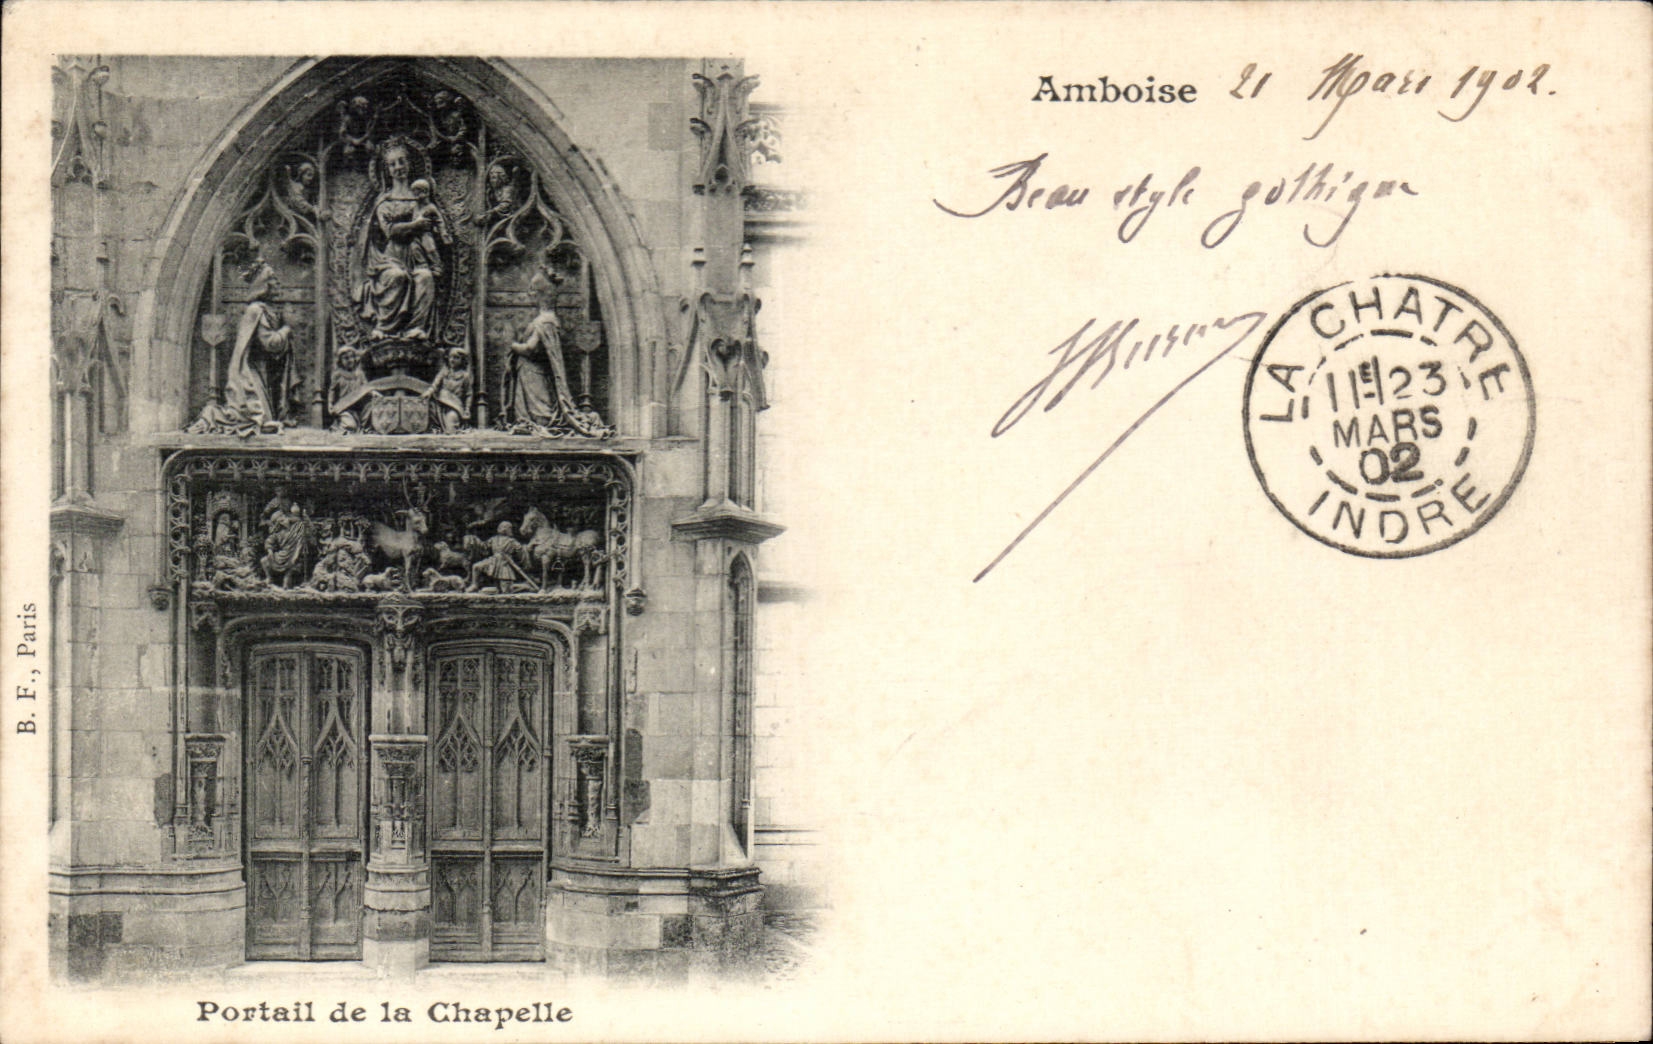 Amboise 21 Mars 1902.
Beau style gothique
LA CHATRE
1 1E 23
MARS
02
INDRE
B. F., Paris
Portail de la Chapelle